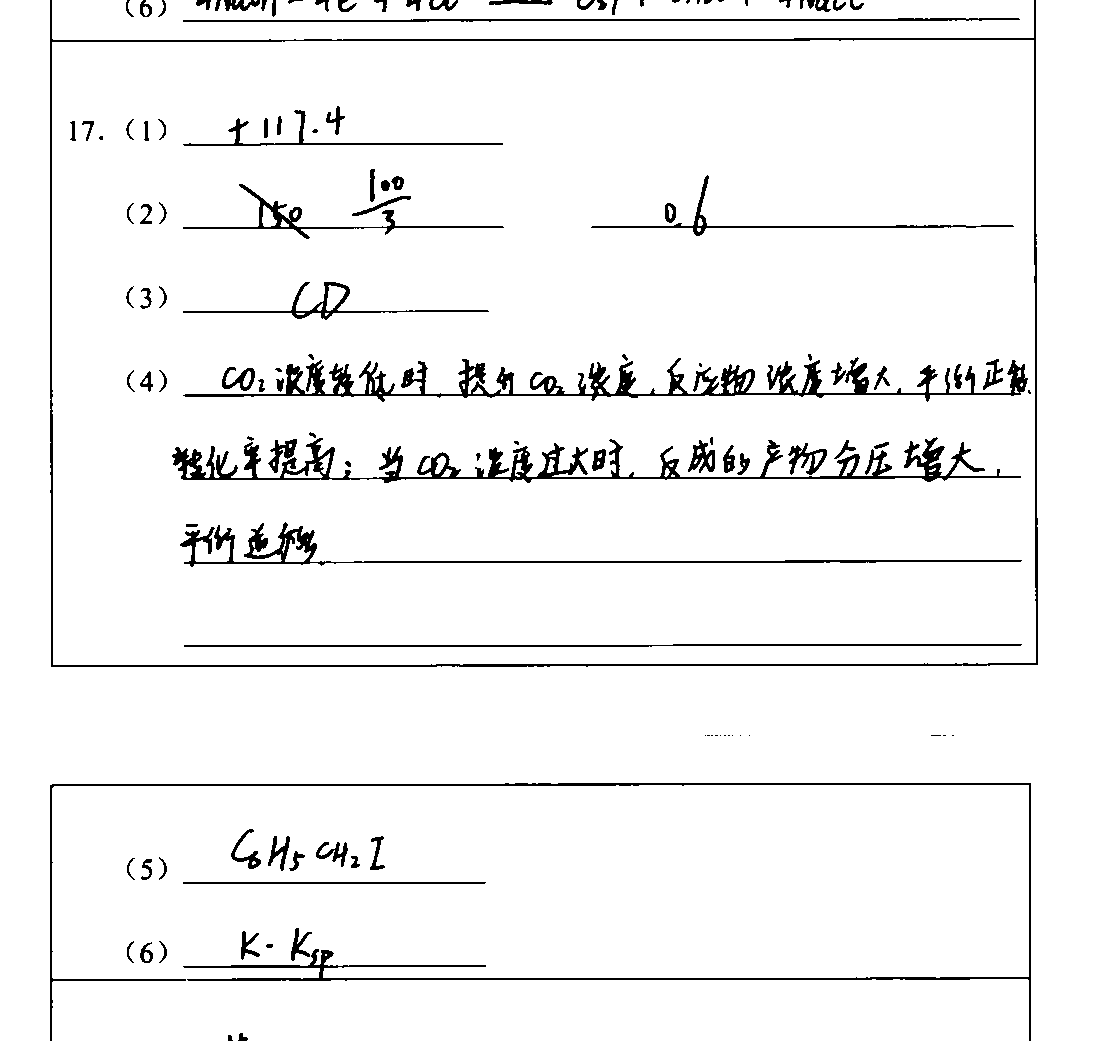 (6)
17. (1) +117.4
(2) 150 100/3 0.6
(3) CD
(4) CO₂浓度较低时,提升CO₂浓度,反应物浓度增大,平衡正移,
转化率提高;当CO₂浓度过大时,反成的产物分压增大,
平衡逆移.
(5) C₆H₅CH₂I
(6) K·Ksp